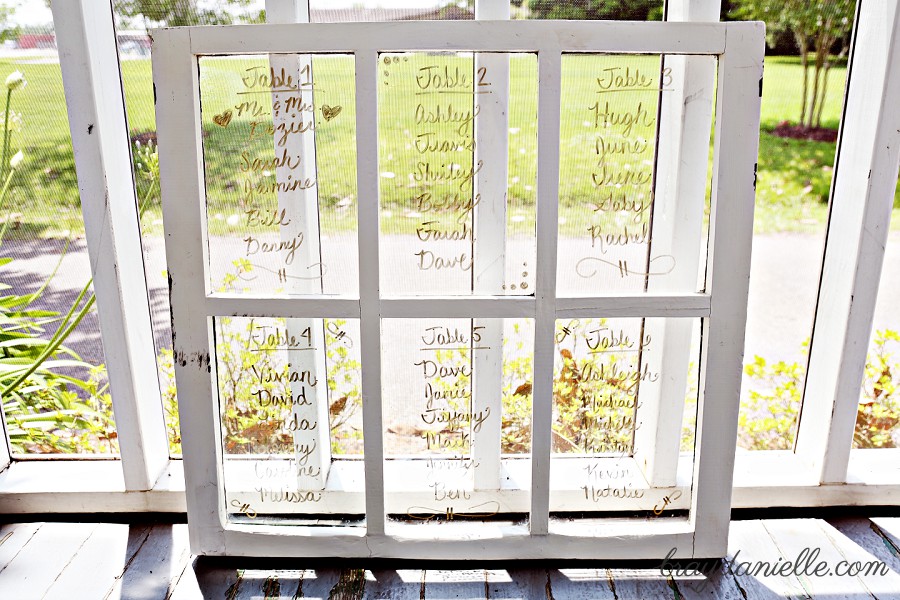 Table 1
Mr. & Mrs.
Sarah
Jasmine
Bill
Danny
Table 2
Ashley
Travis
Shirley
Bobby
Farah
Dave
Table 3
Hugh
June
Gaby
Rachel
Table 4
Vivian
David
Caroline
Melissa
Table 5
Dave
Janie
Tiffany
Mark
Jennifer
Ben
Table 6
Ashleigh
Michael
Kevin
Natalie
braydanielle.com